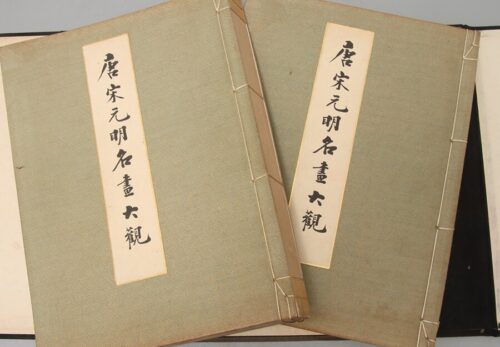 唐宋元明名畫大觀
唐宋元明名畫大觀